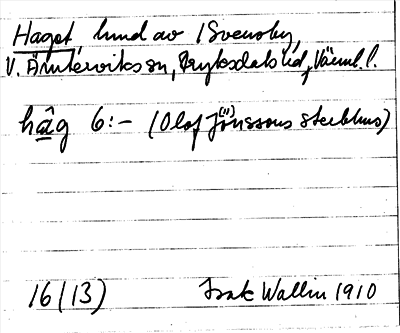 Haget, lund av /Svensby,
V. Ämterviks sn, Fryksdals hd, Värml. l.
hâg 6:- (Olof Jönssons sterbhus)
16(13) Isak Wallin 1910